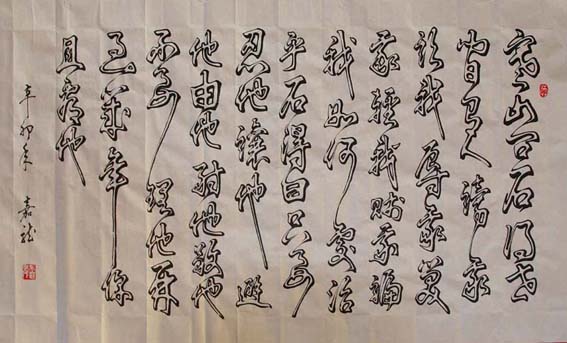 寒山问石得世
间有人谤我
欺我辱我笑
我轻我贱我骗
我如何处治
乎石得曰只要
忍他让他避
他由他耐他敬他
不要理他再
过几年你
且看他
辛卯年 嘉